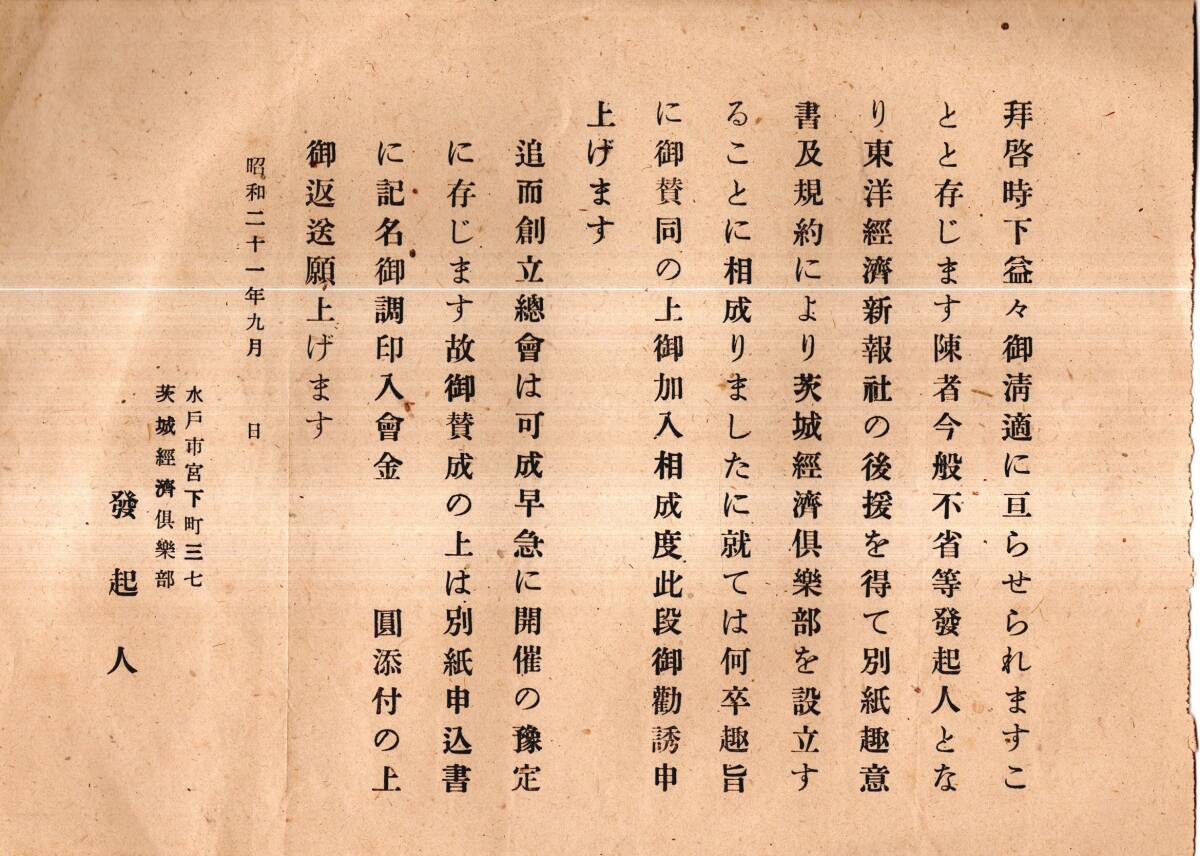 拜啓時下益々御淸適に亘らせられますこ
とと存じます陳者今般不省等發起人とな
り東洋經濟新報社の後援を得て別紙趣意
書及規約により茨城經濟俱樂部を設立す
ることに相成りましたに就ては何卒趣旨
に御賛同の上御加入相成度此段御勸誘申
上げます
追而創立總會は可成早急に開催の豫定
に存じます故御賛成の上は別紙申込書
に記名御調印入會金　　　圓添付の上
御返送願上げます
昭和二十一年九月　　日
水戶市宮下町三七
茨城經濟俱樂部
發起人